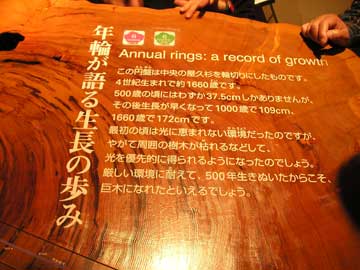 年輪が語る生長の歩み
Annual rings: a record of growth
この円盤は中央の屋久杉を輪切りにしたものです。
4世紀生まれで約1660歳です。
500歳の頃にはわずか37.5cmしかありませんが、
その後生長が早くなって1000歳で109cm、
1660歳で172cmです。
最初の頃は光に恵まれない環境だったのですが、
やがて周囲の樹木が枯れるなどして、
光を優先的に得られるようになったのでしょう。
厳しい環境に耐えて、500年生きぬいたからこそ、
巨木になれたといえるでしょう。